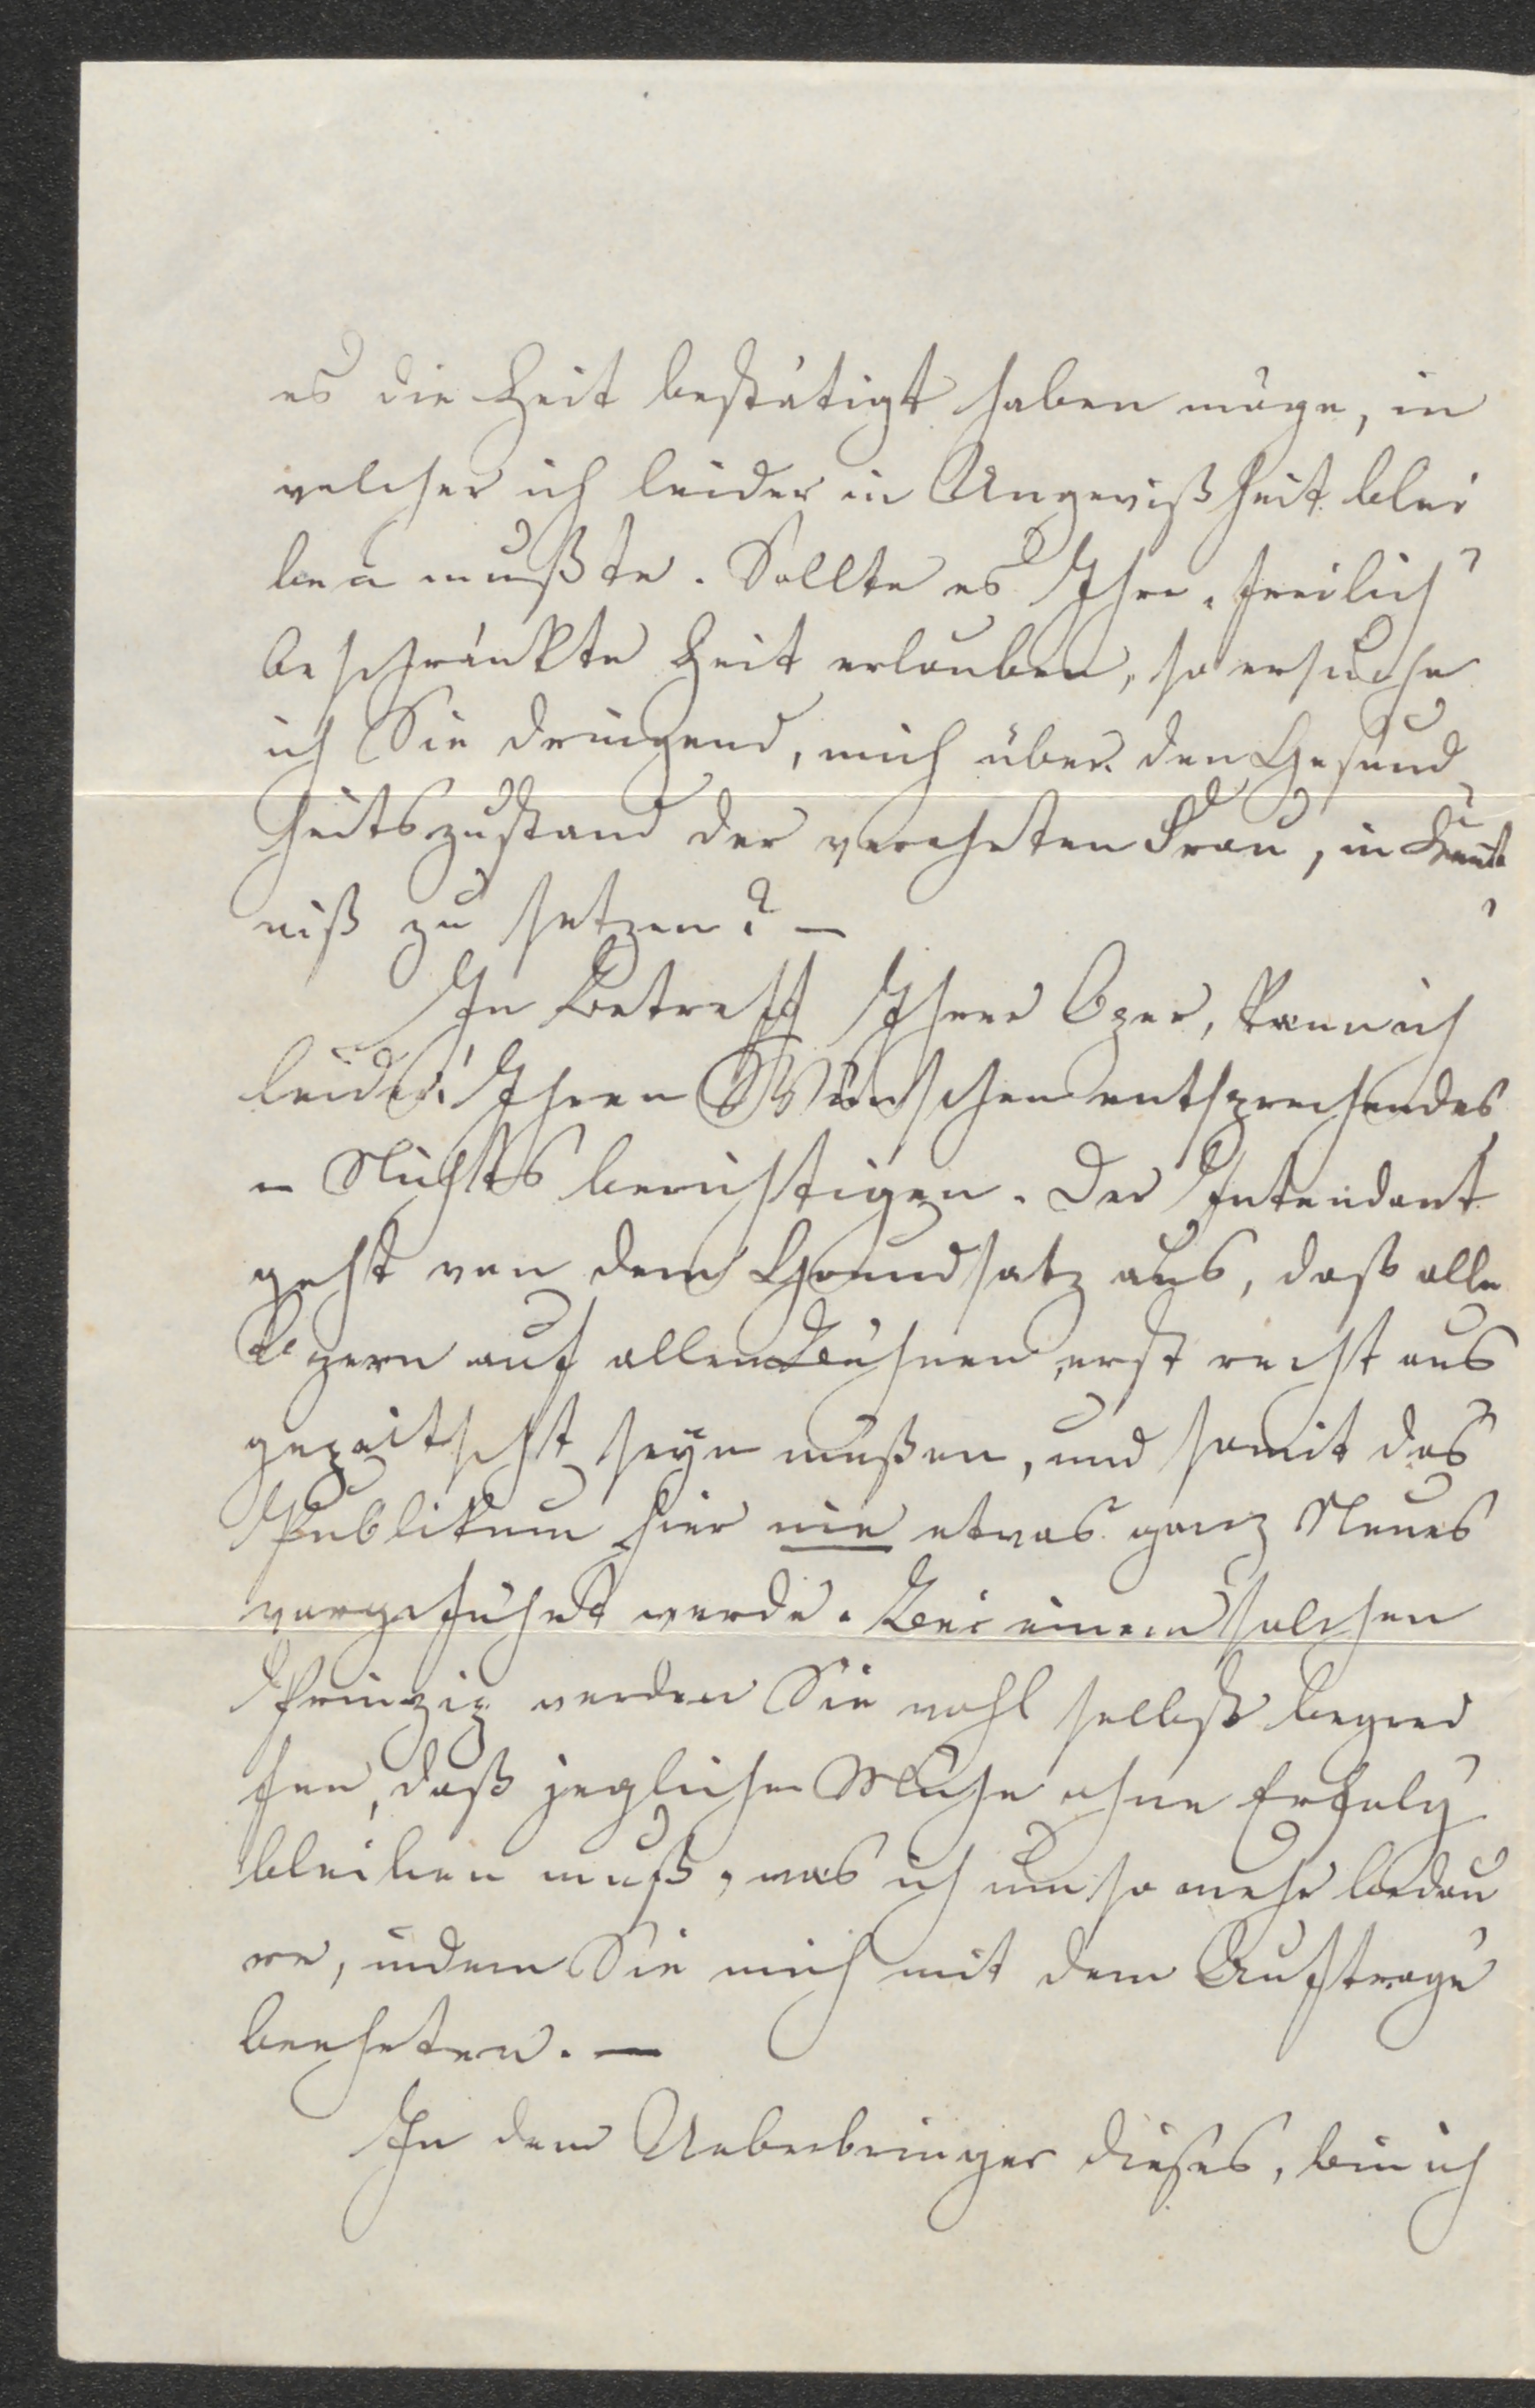 es die Zeit bestätigt haben möge, in
welcher ich leider in Ungewißheit blei
ben mußte. Sollte es Ihre, freilich
beschränkte Zeit erlauben, so ersuche
ich Sie dringend, mich über den Gesund
heitszustand der verehrten Frau, in Kennt
niß zu setzen? —
In Betreff Ihrer Oper, kann ich
leider! Ihren Wünschen entsprechendes
– Nichts berichtigen. Der Intendant
geht von dem Grundsatz aus, daß alle
Opern auf allen Bühnen erst recht aus
gepeitscht seyn mußen, und somit das
Publikum hier nie etwas ganz Neues
vorgeführt werde. Bei einem solchen
Prinzip werden Sie wohl selbst begrei
fen, daß jegliche Mühe ohne Erfolg
bleiben muß, was ich um so mehr bedau
re, indem Sie mich mit dem Auftrage
beehrten. —
In dem Ueberbringer dieses, bin ich